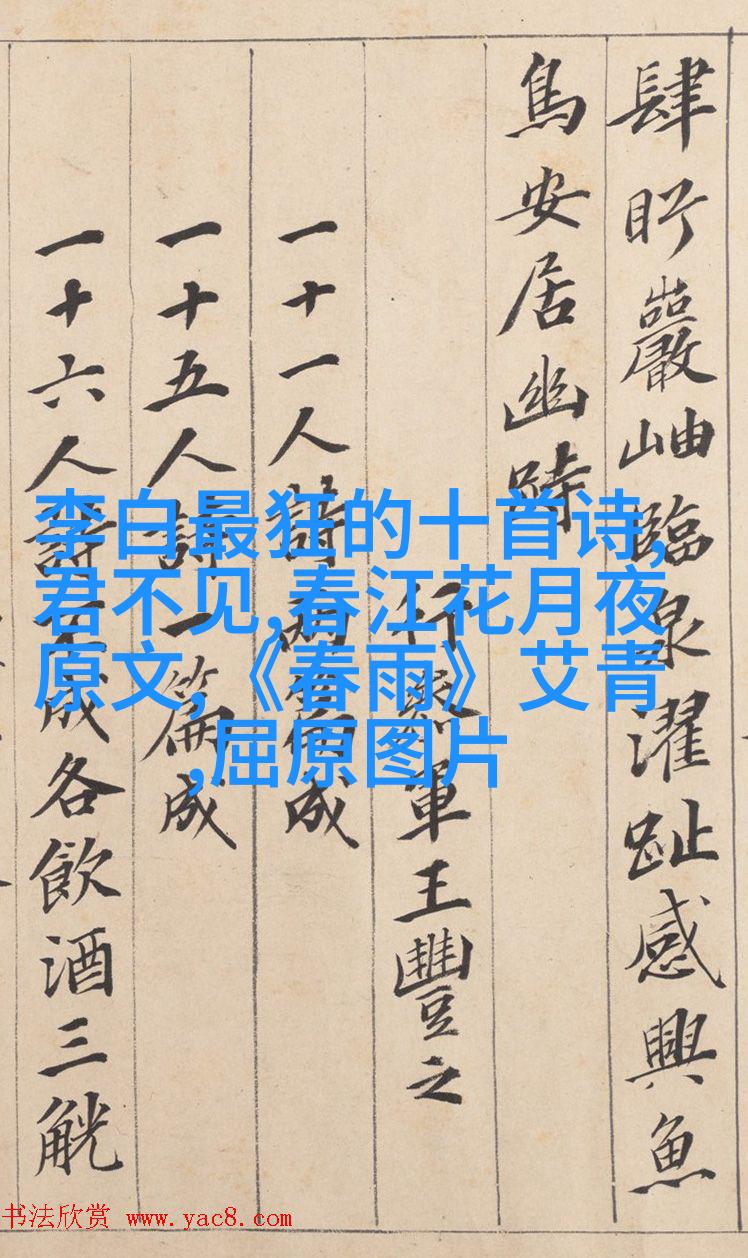 肆眄巖岫臨泉濯趾感興魚
鳥安居幽跱
行叅軍王豐之
一十一人詩兩篇成
一十五人詩一篇成
一十六人詩不成各飲酒三觥
李白最狂的十首诗,
君不见,春江花月夜
原文,《春雨》艾青
,屈原图片
书法欣赏 www.yac8.com